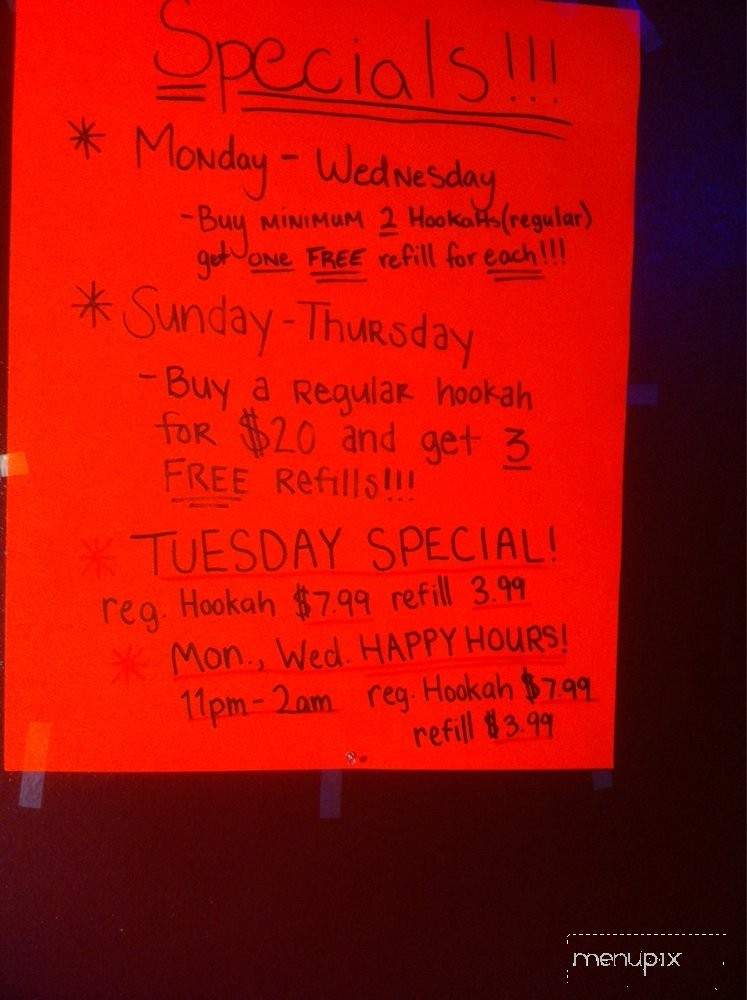 Specials!!!
* Monday - Wednesday
- Buy MINIMUM 2 Hookahs (regular)
get ONE FREE refill for each!!!
* Sunday - Thursday
- Buy a Regular hookah
for $20 and get 3
FREE Refills!!!
* TUESDAY SPECIAL!
reg. Hookah $7.99 refill 3.99
* Mon., Wed. HAPPY HOURS!
11pm - 2am reg. Hookah $7.99
refill $3.99
menupix